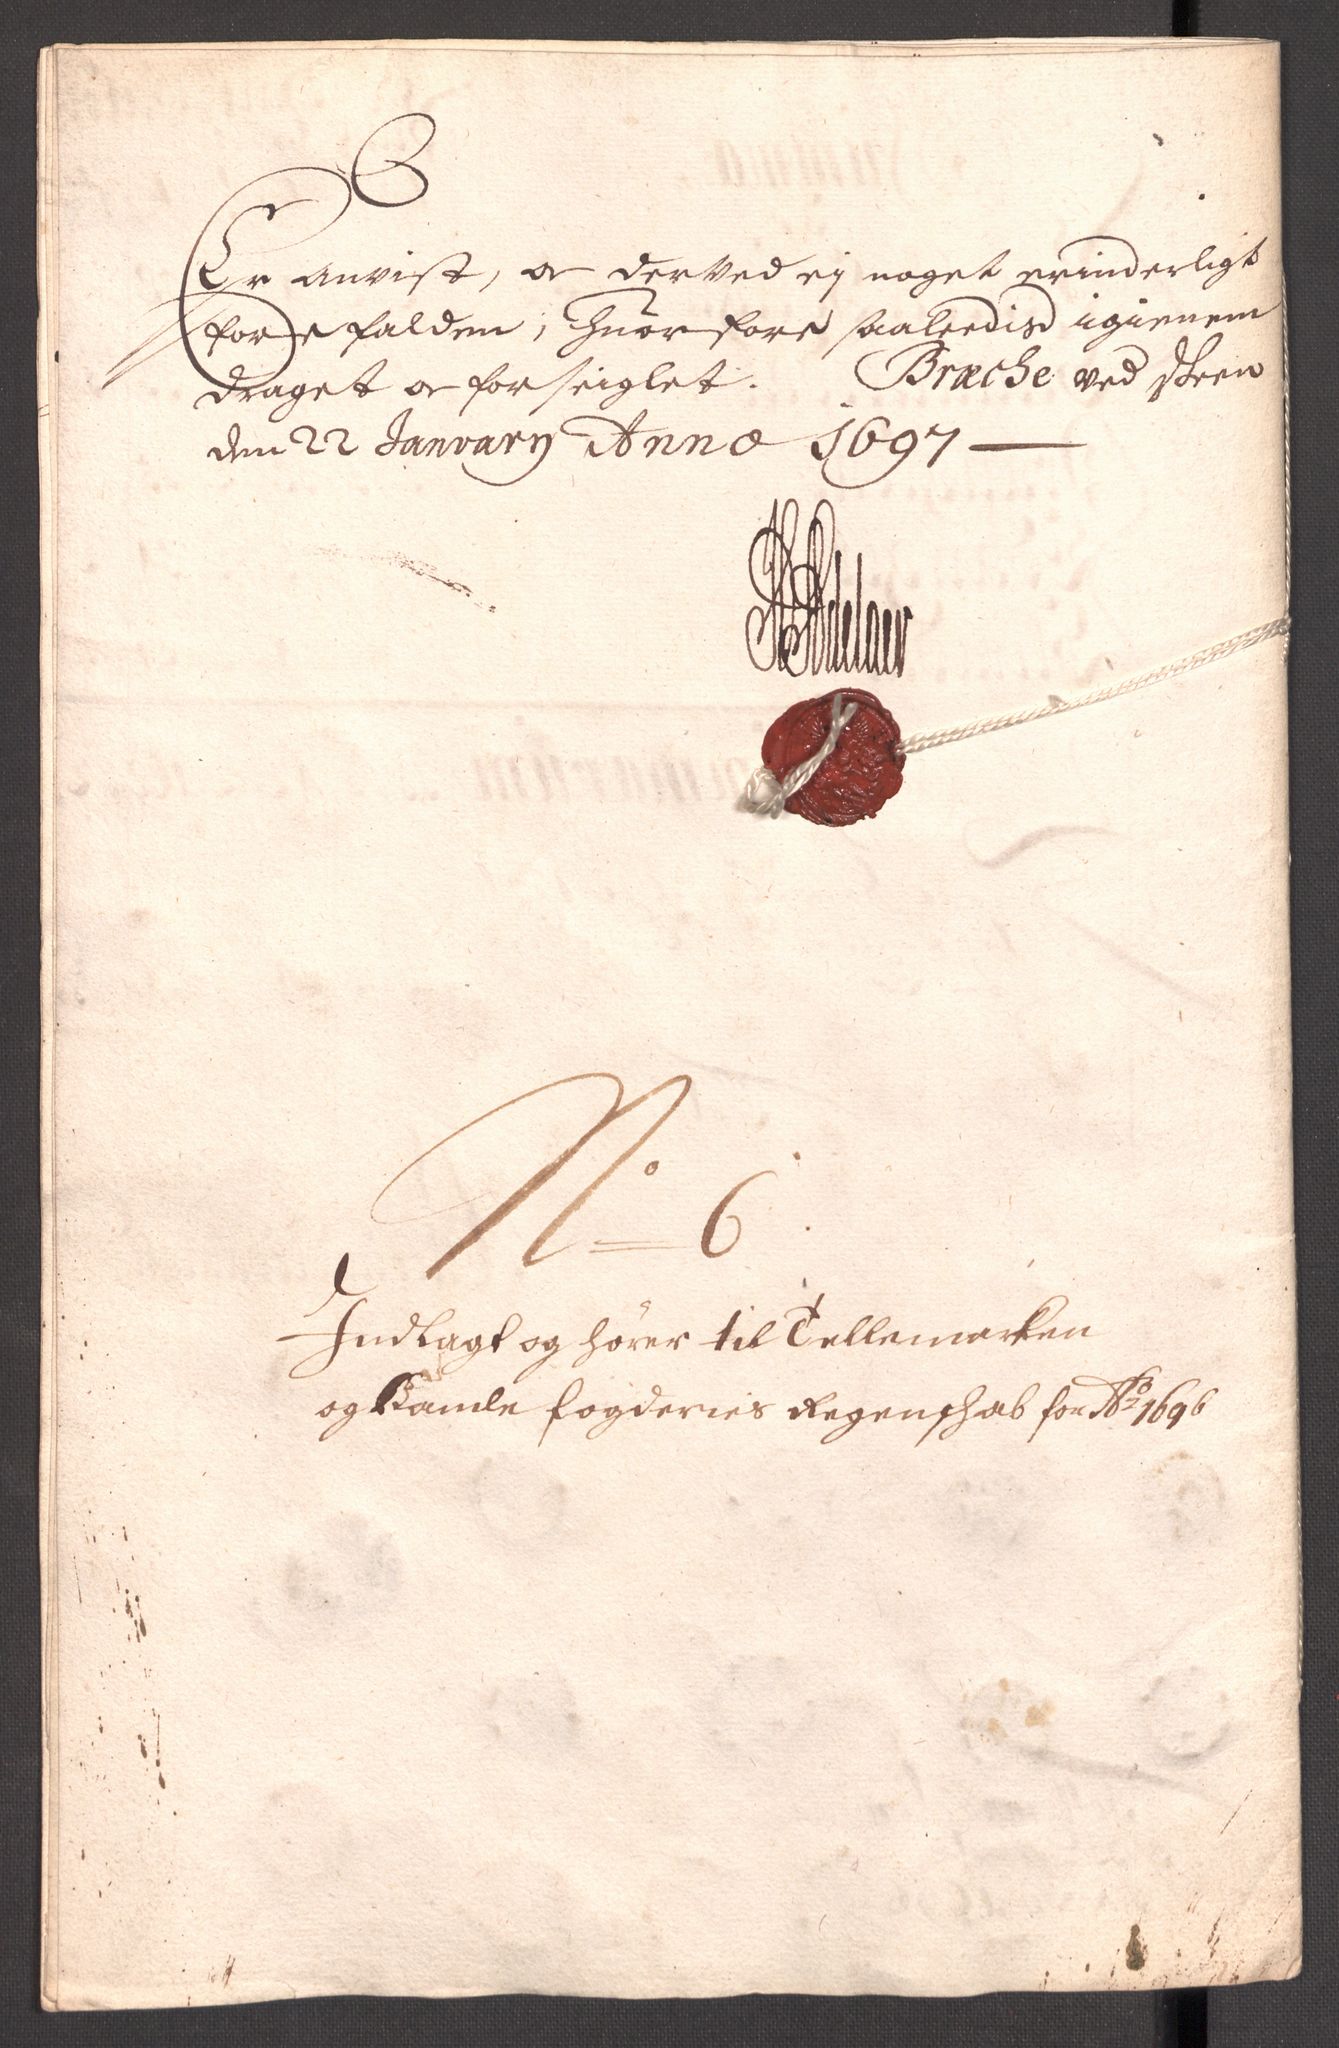 Er anvist, oc derved ej noget erinderligt
forefalden, huorfore saaleedis igienem
draget oc forseiglet. Bratsbe ved skeen
den 22 January Anno 1697
Adelaer
No 6
Indlagt og hører til Tellemarken
og Bamle fogderies Regenschab for Ao 1696